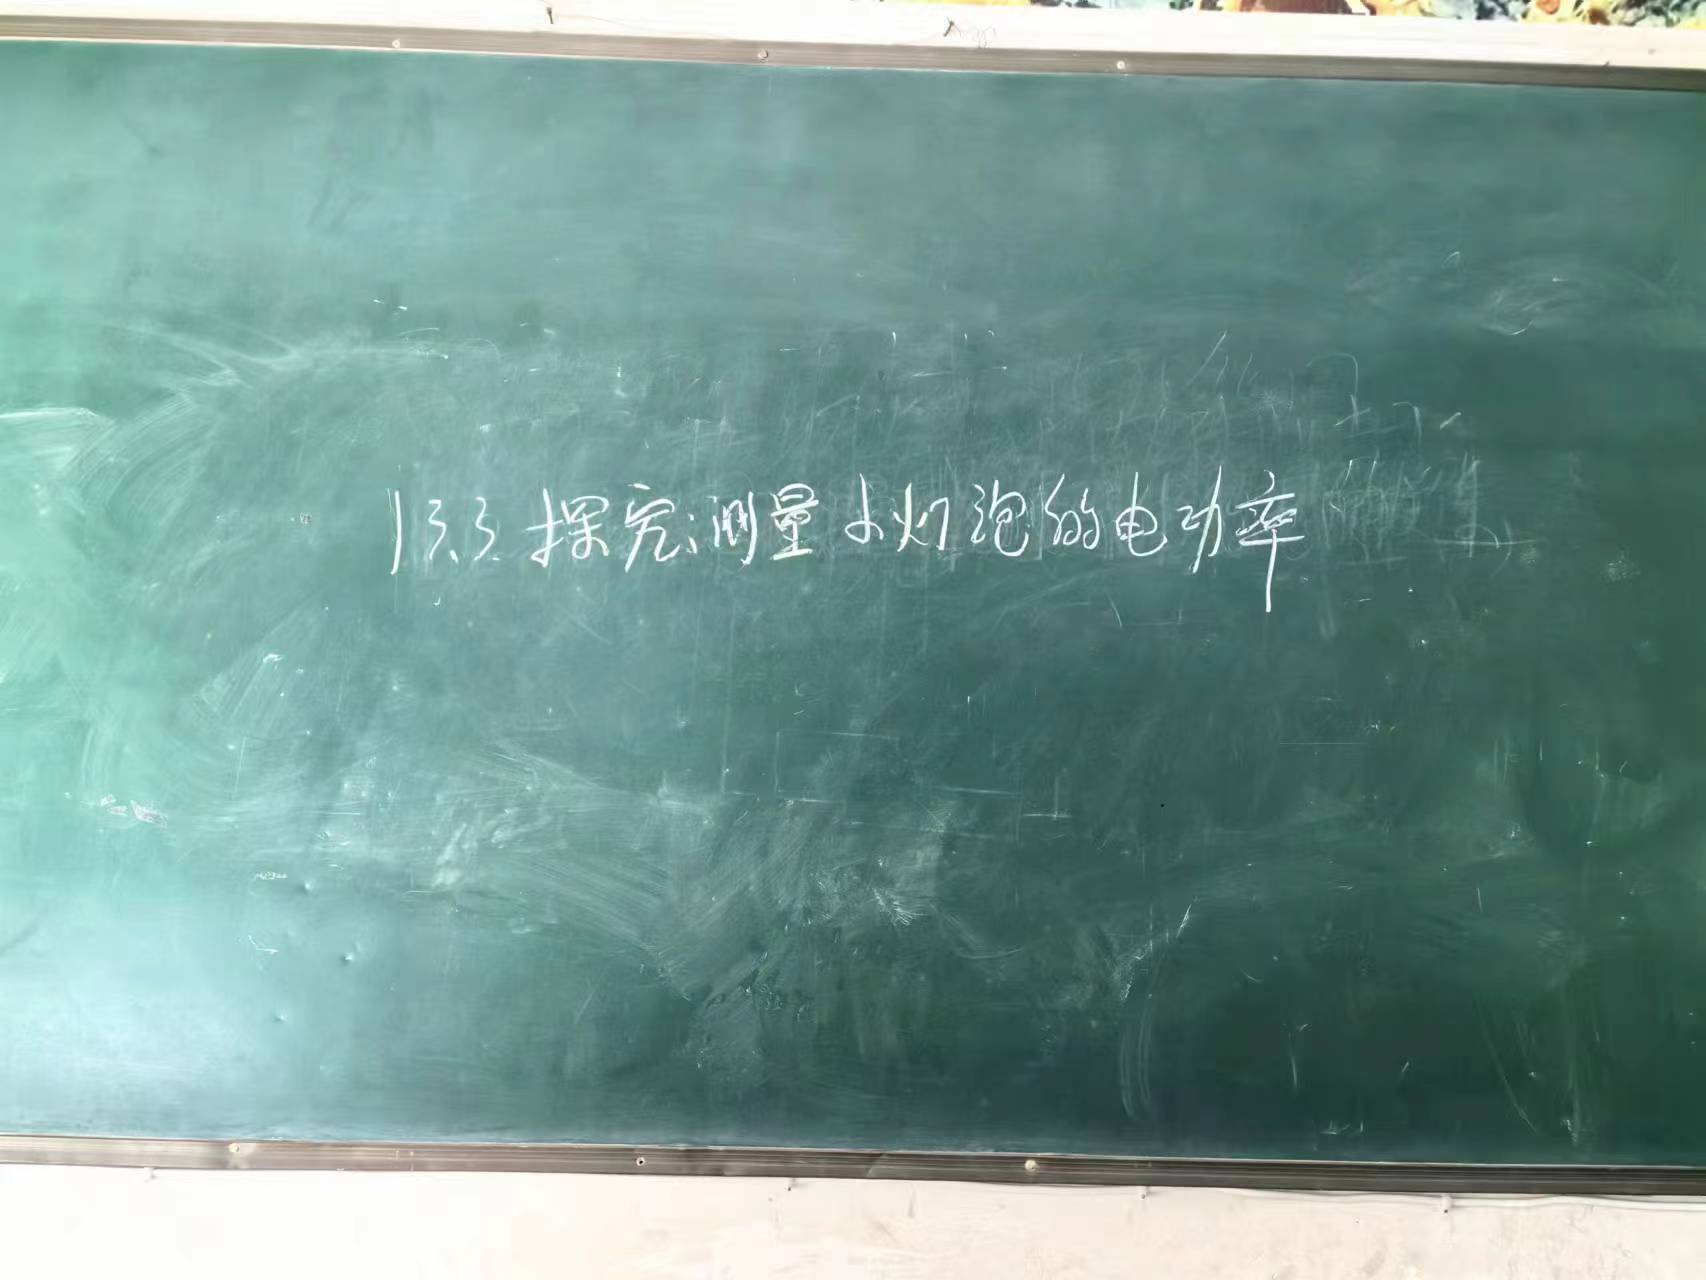 13.3 探究:测量小灯泡的电功率